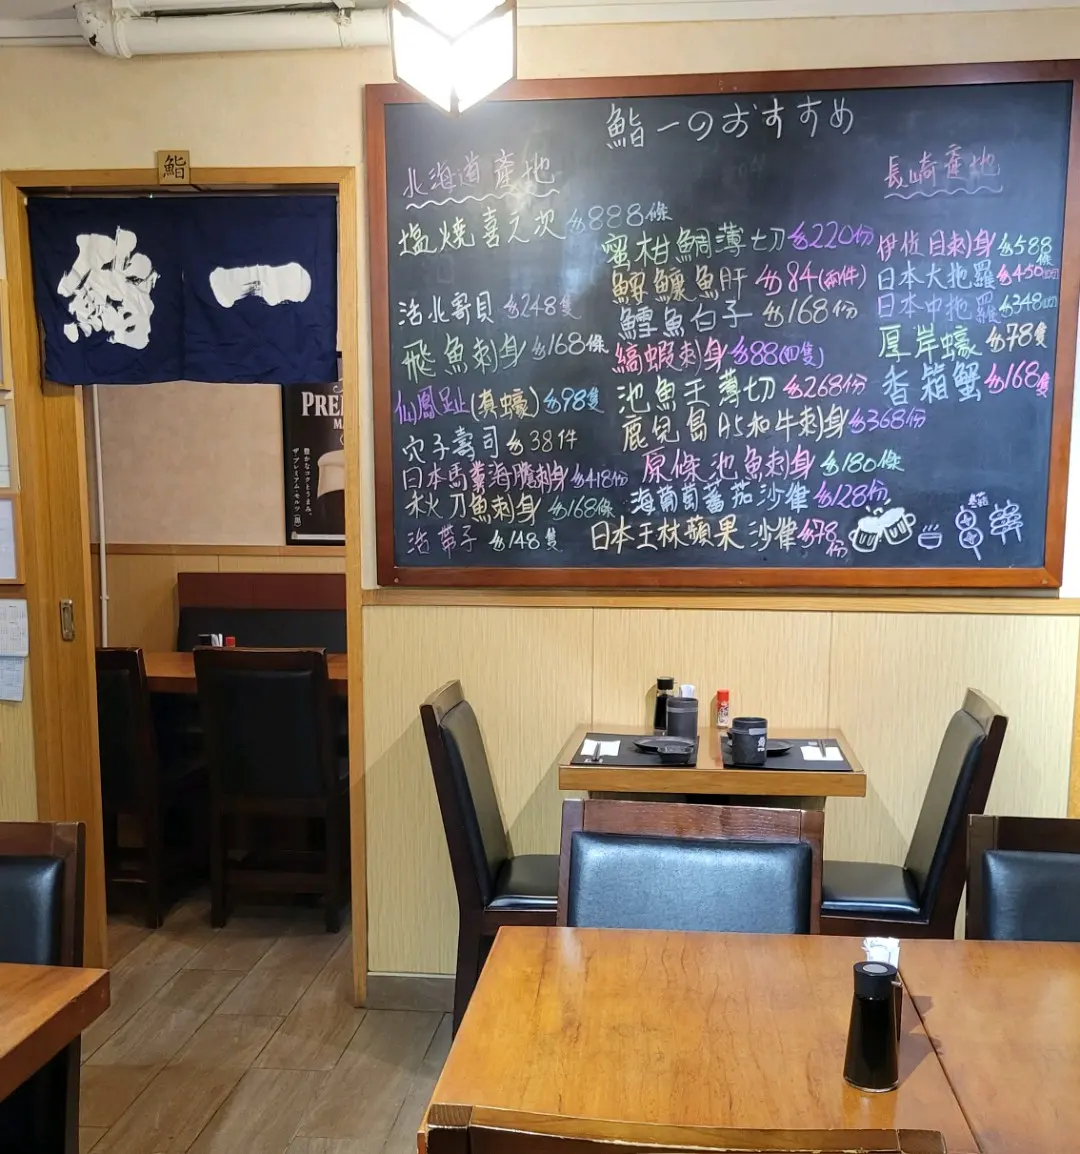 鮨
鮨一
鮨一のおすすめ
北海道產地
塩燒喜之次 $888條
活北寄貝 $248隻
飛魚刺身 $168條
仙鳳趾(真蠔) $98隻
穴子壽司 $38件
日本馬糞海膽刺身 $418份
秋刀魚刺身 $168條
活帶子 $148隻
蜜柑鯛薄切 $220份
鮟鱇魚肝 $84(兩件)
鱈魚白子 $168份
縞蝦刺身 $88(四隻)
池魚王薄切 $268份
鹿兒島A5和牛刺身 $368份
原條池魚刺身 $180條
海葡萄蕃茄沙律 $128份
日本王林蘋果沙律 $78份
長崎產地
伊佐目刺身 $588條
日本大拖羅 $450
日本中拖羅 $348
厚岸蠔 $78隻
香箱蟹 $168隻
PRE
豊かなコクとうまみ。
ザ・プレミアム・モルツ
鮨